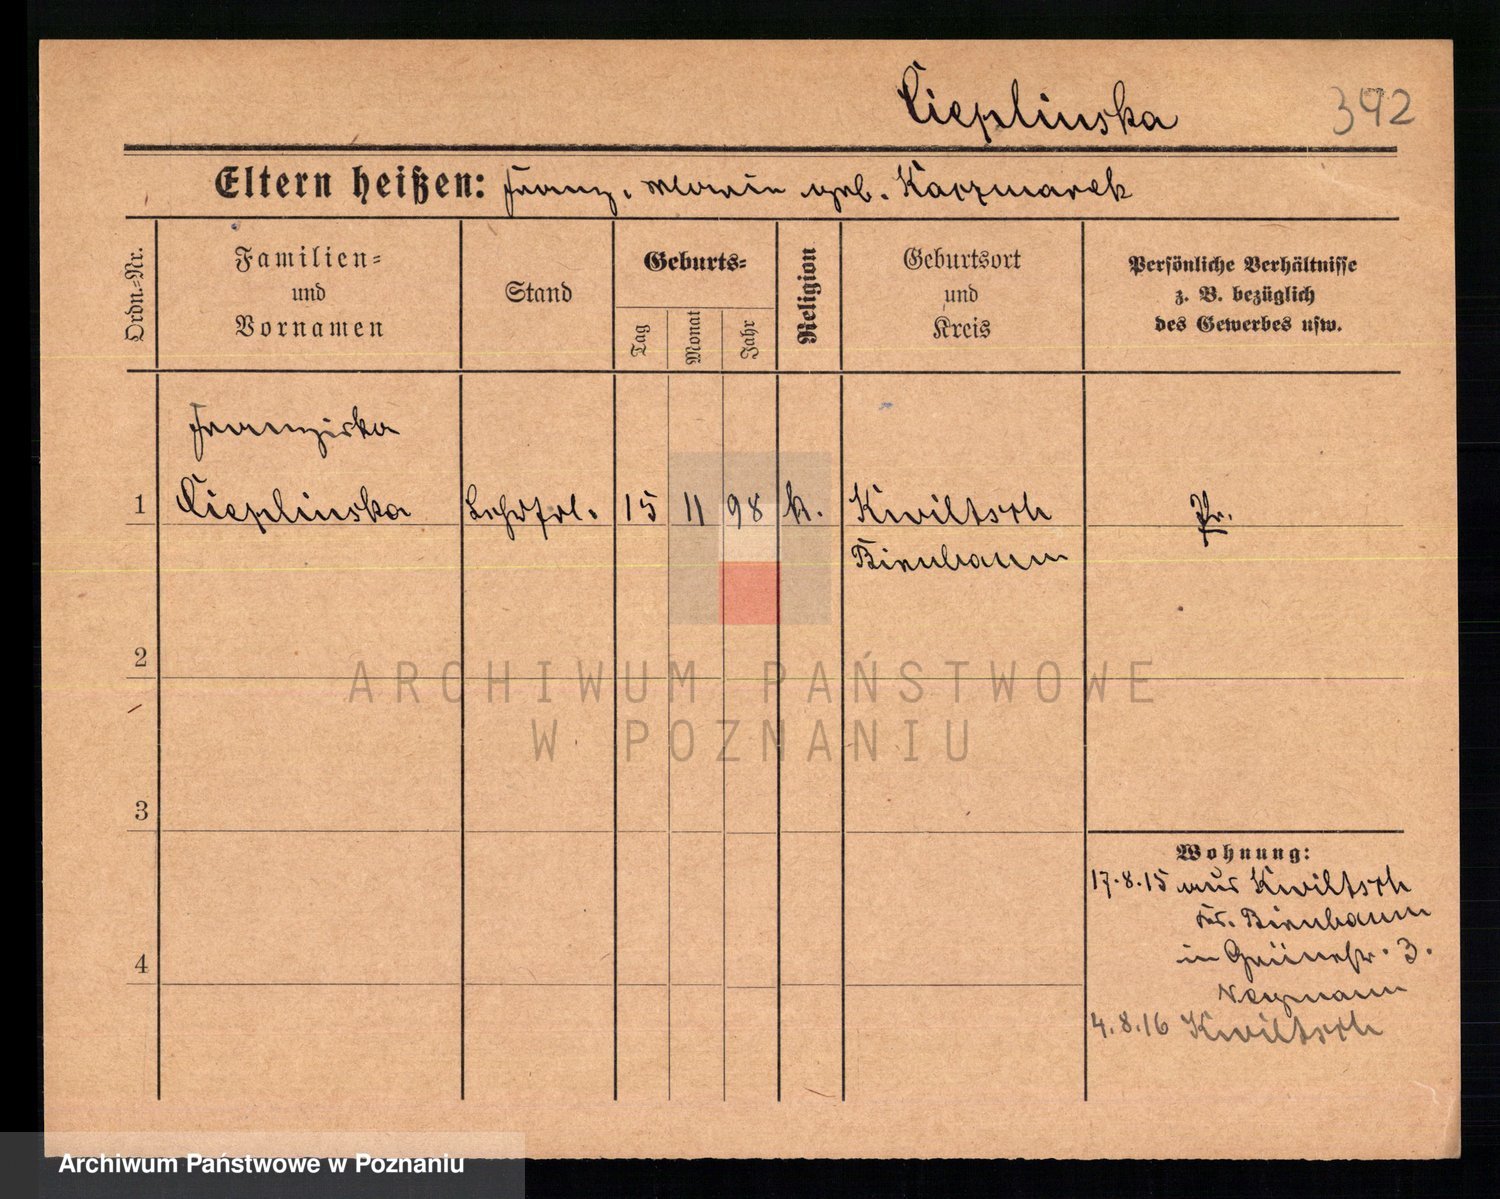 Cieplinska
392
Eltern heißen: Franz, Marie geb. Kaczmarek
Ordn.-Nr.
Familien-
und
Vornamen
Stand
Geburts-
Tag
Monat
Jahr
Religion
Geburtsort
und
Kreis
Persönliche Verhältnisse
z. B. bezüglich
des Gewerbes usw.
Franziska
1 Cieplinska Lehrfrl. 15 11 98 k. Kwiltsch Pr.
Birnbaum
2
ARCHIWUM PAŃSTWOWE
W POZNANIU
3
Wohnung:
17.8.15 aus Kwiltsch
Kr. Birnbaum
in Grünestr. 3.
4
4.8.16 Kwiltsch
Archiwum Państwowe w Poznaniu